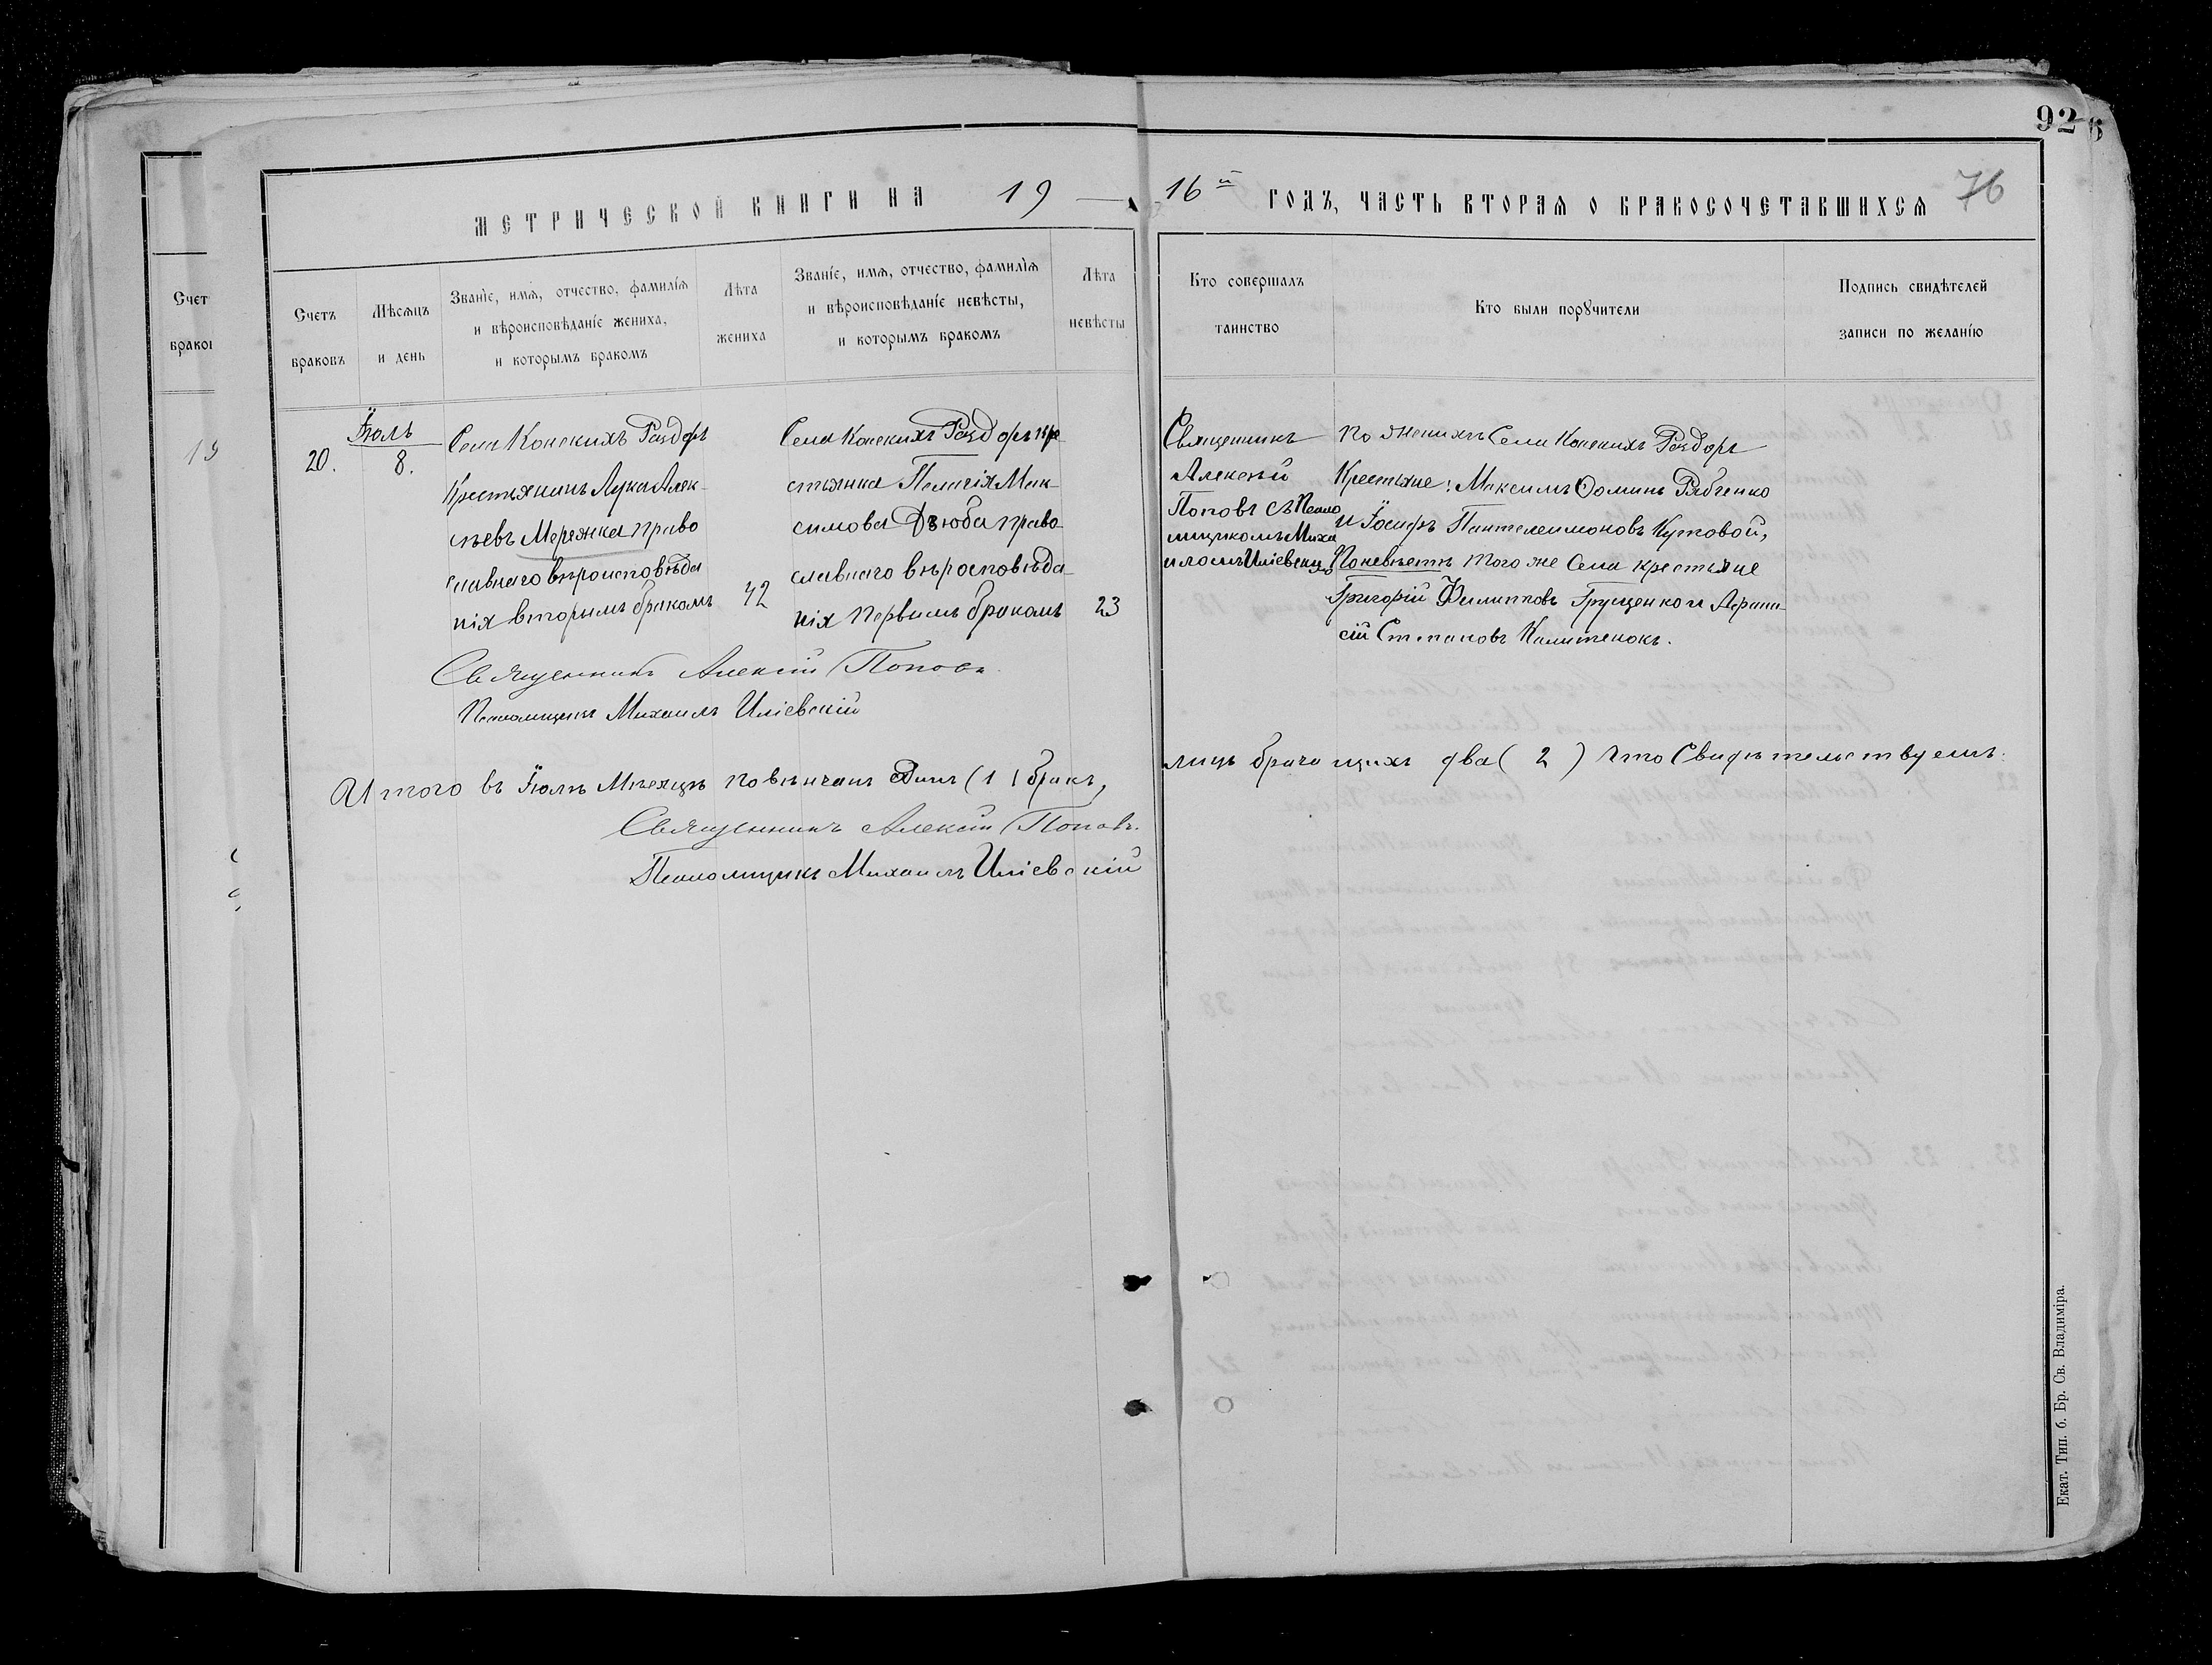 92
76
МЕТРИЧЕСКОЙ КНИГИ НА 19 — 16й ГОДЪ, ЧАСТЬ ВТОРАЯ О БРАКОСОЧЕТАВШИХСЯ
Счетъ браковъ
Мѣсяцъ и день
Званіе, имя, отчество, фамилія
и вѣроисповѣданіе жениха,
и которымъ бракомъ
Лѣта жениха
Званіе, имя, отчество, фамилія
и вѣроисповѣданіе невѣсты,
и которымъ бракомъ
Лѣта невѣсты
Кто совершалъ
таинство
Кто были порꙋчители
Подпись свидѣтелей
записи по желанію
20.
Іюль
8.
Села Конскихъ Раздоръ
Крестьянинъ Лука Алек-
сѣевъ Мережка право
славнаго вѣроисповѣда
нія вторымъ бракомъ
42
Села Конскихъ Раздоръ кре
стьянка Пелагія Мак-
симова Дзюба право
славнаго вѣроисповѣда-
нія первымъ бракомъ
23
Священникъ
Алексѣй
Поповъ съ Псало
мщикомъ Миха
иломъ Иліевскимъ
По женихѣ Села Конскихъ Раздоръ
Крестьяне: Максимъ Ѳоминъ Рябченко
и Іосифъ Пантелеимоновъ Кутовой,
По невѣстѣ того же Села крестьяне
Григорій Филипповъ Грущенко и Афана-
сій Степановъ Калитенокъ.
Священникъ Алексій Поповъ
Псаломщикъ Михаилъ Иліевскій
Итого въ Іюлѣ Мѣсяцѣ повѣнчанъ Одинъ (1) бракъ,
лицъ брачущихъ два (2) Что Свидѣтельствуемъ:
Священникъ Алексій Поповъ.
Псаломщикъ Михаилъ Иліевскій
Екат. Тип. б. Бр. Св. Владиміра.